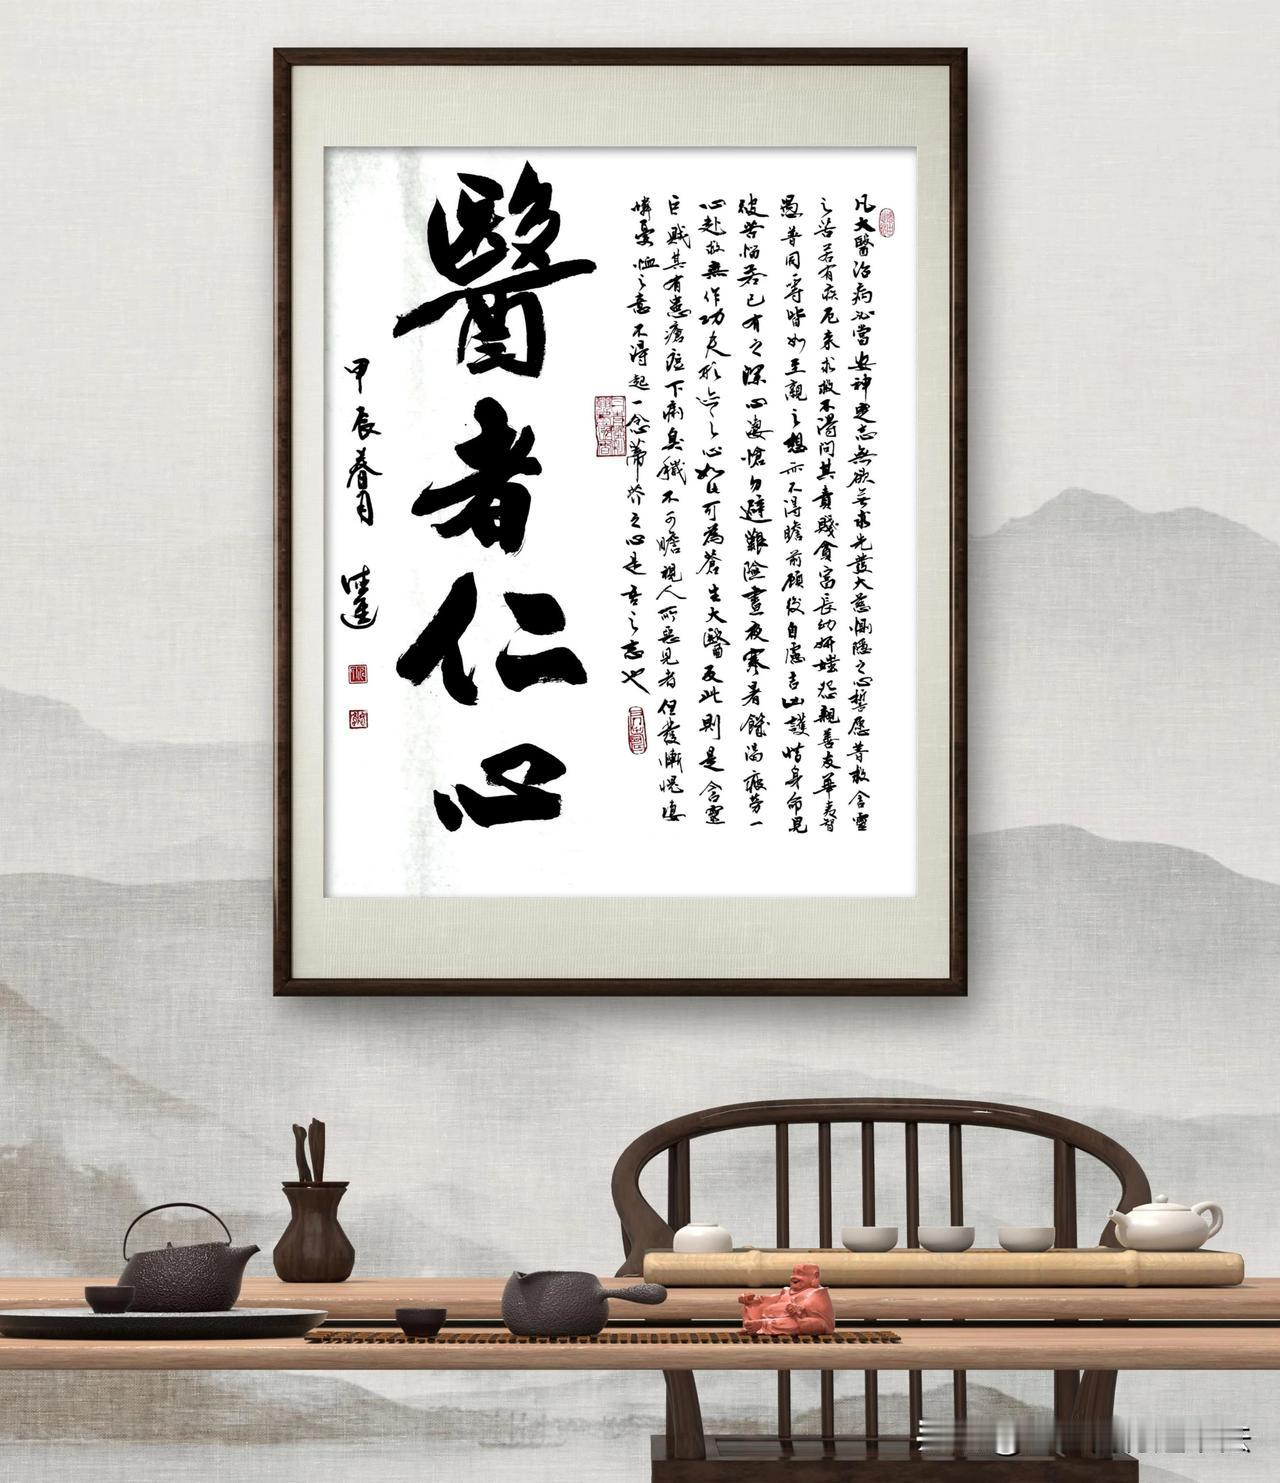 凡大醫治病必當安神定志無欲無求先發大慈惻隱之心誓愿普救含靈
之苦若有疾厄來求救不得問其貴賤貧富長幼妍媸怨親善友華夷智
愚普同一等皆如至親之想亦不得瞻前顧後自慮吉凶護惜身命見
彼苦惱若己有之深心淒愴勿避艱險晝夜寒暑饑渴疲勞一
心赴救無作功夫形迹之心如此可為蒼生大醫反此則是含靈
巨賊其有患瘡痍下痢臭穢不可瞻視人所惡見者但發慚愧淒
憐憂恤之意不得起一念蒂芥之心是吾之志也
醫者仁心
甲辰春月